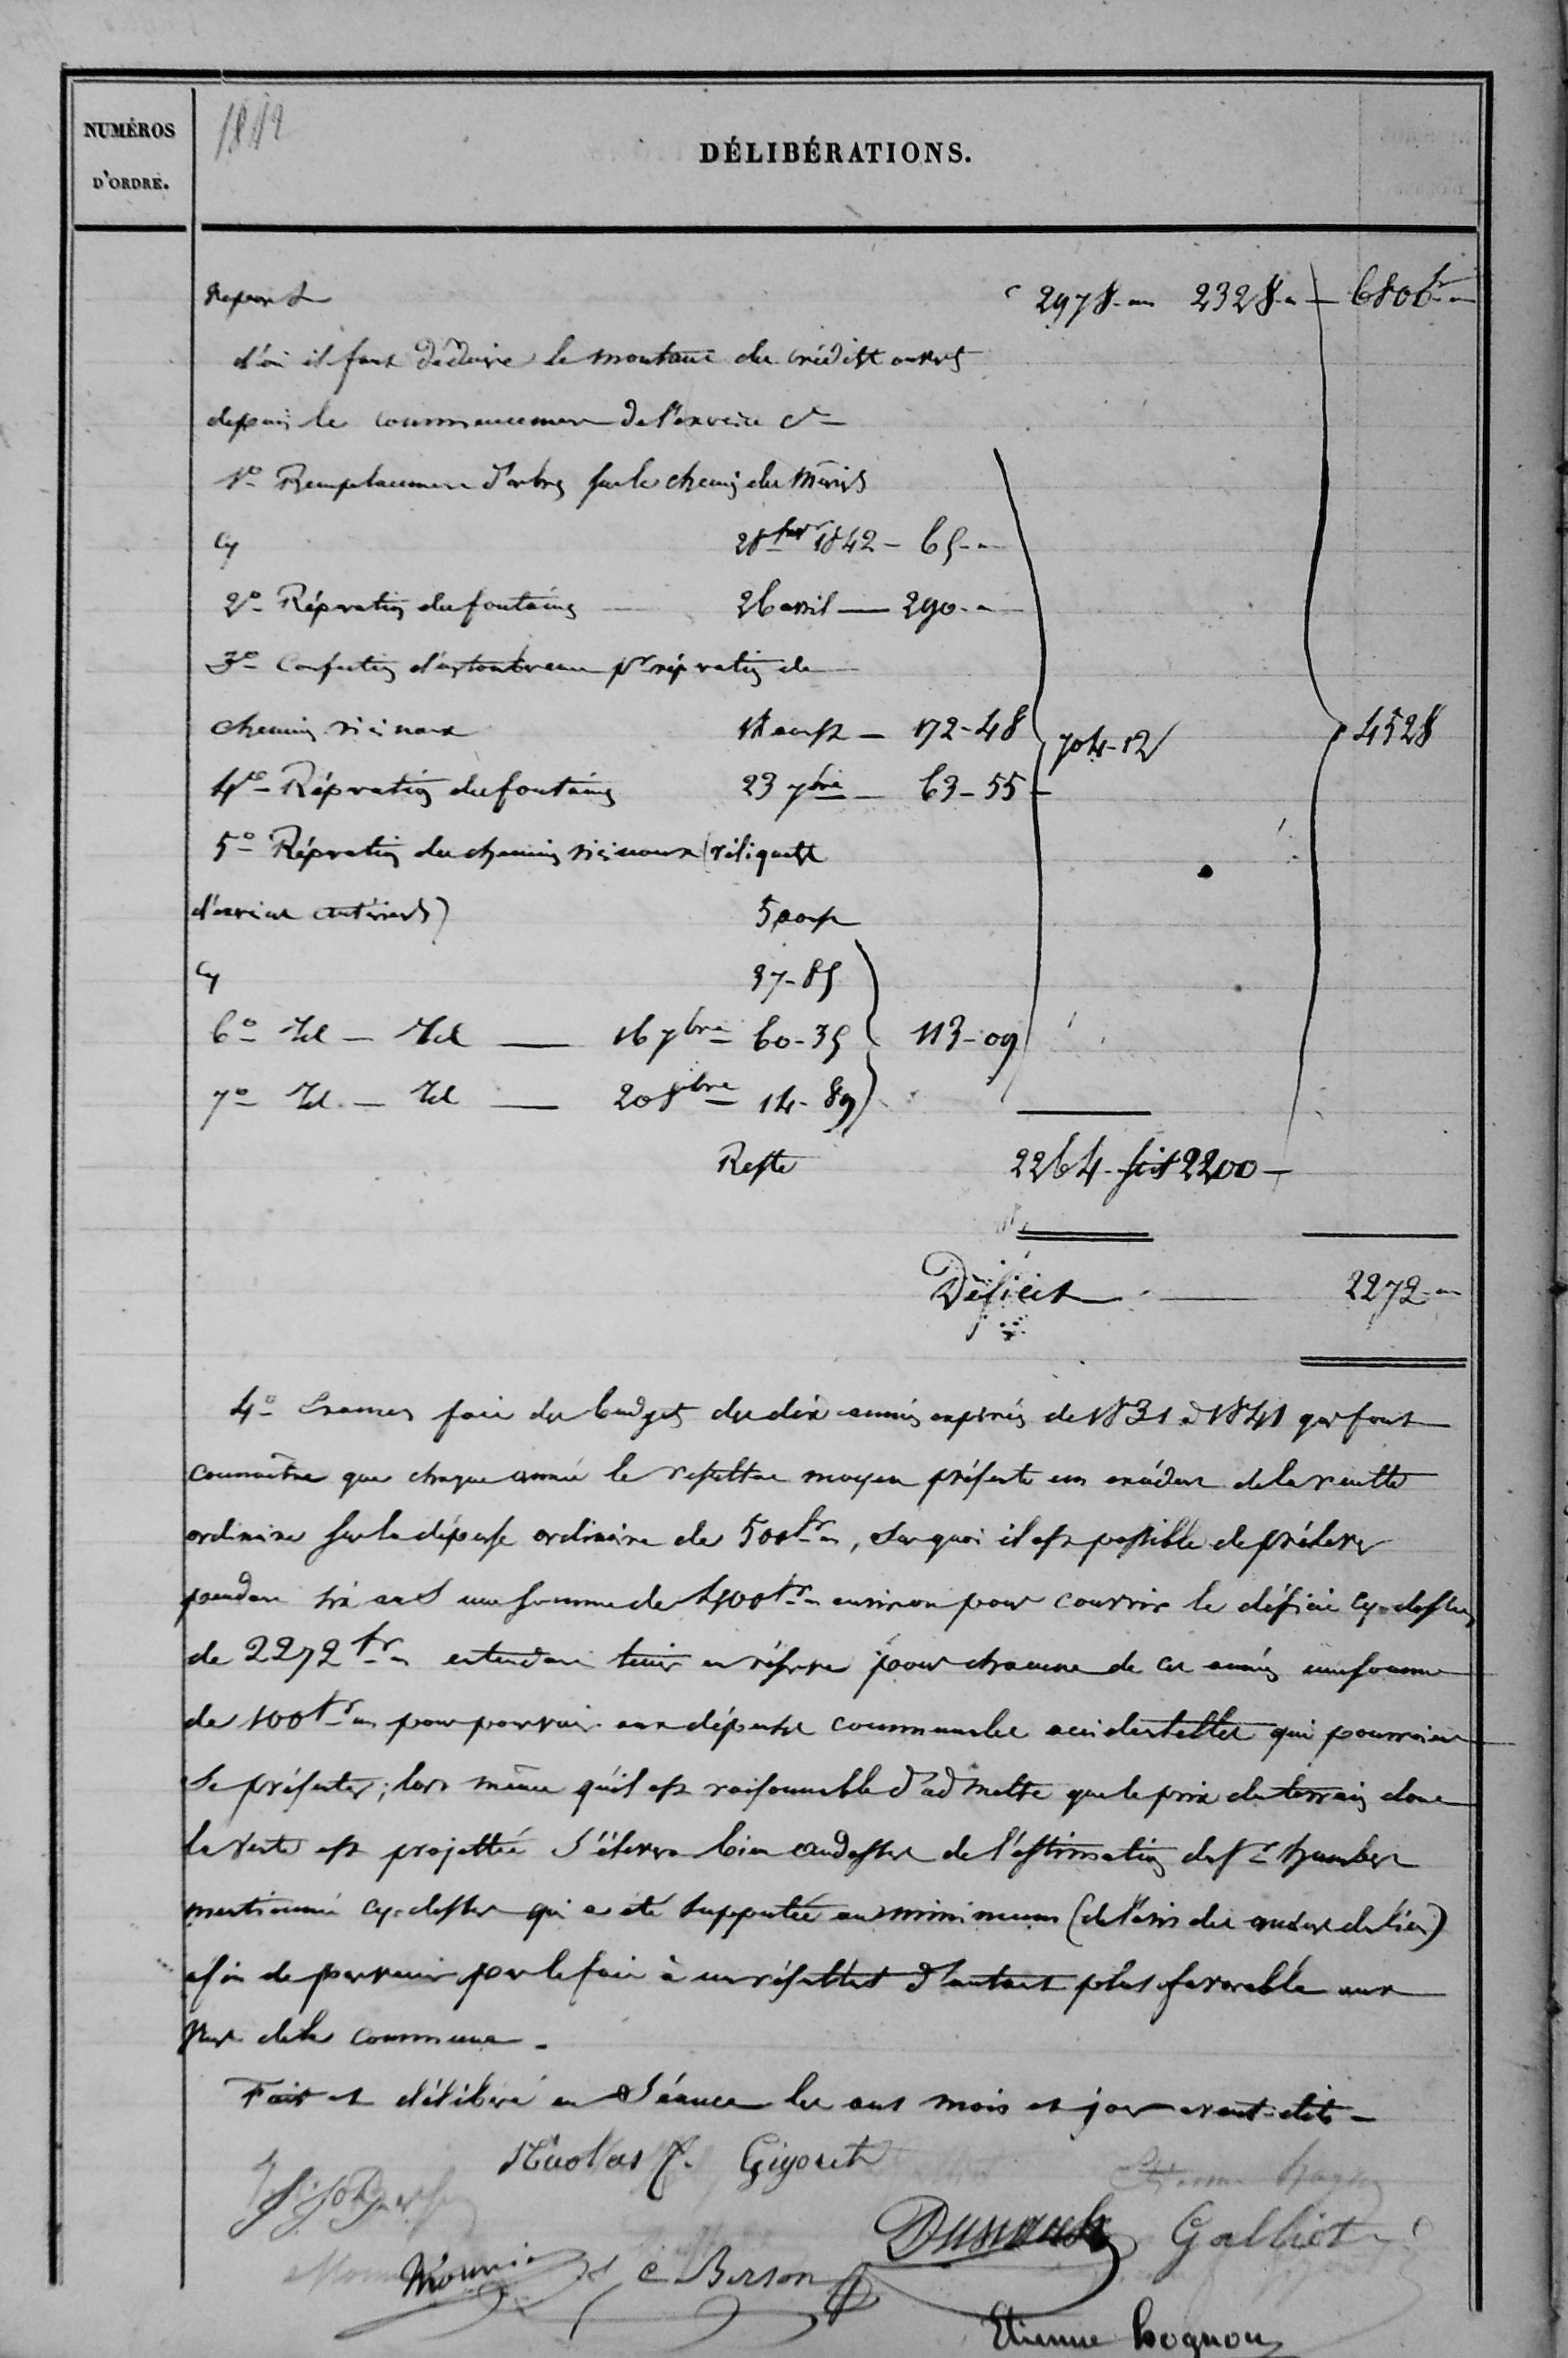 NUMÉROS
D'ORDRE.
1842
DÉLIBÉRATIONS.
Report 2978 2328 6806 fr
d'où il faut déduire le montant des crédits ouverts
depuis le commencement de l'exercice
1o Remplacement d'arbres sur le chemin du
Cy 28 1842 - 65
2o Réparation des fontaines 26 avril 290
3o Confection d'un tombereau pr réparation de
chemins vicinaux aoust 172-48 704-12 4528
4o Réparation des fontaines 23 7bre 63-55
5o Réparation des chemins vicinaux (reliquat
d'exercices antérieurs) 5 aoust
Cy 37-85
6o Id - Id 16 7bre 60-35 113-09
7o Id - Id 20 8bre 14-89
Reste 2264 soit 2200
Déficit 2272
4o Examen fait des budgets des dix années expirées de 1831 à 1841 qui font
connaître que chaque année le résultat moyen présente un excédent de la recette
ordinaire sur la dépense ordinaire de 500 fr, sur quoi il est possible de prélever
pendant six ans une somme de 400 fr environ pour couvrir le déficit cy-dessus
de 2272 fr entendant tenir en réserve pour chacune de ces années une somme
de 100 fr pour pourvoir aux dépenses communales accidentelles qui pourroient
se présenter; lors même qu'il est raisonnable d'admettre que le prix des terrains dont
la vente est projettée s'élevera bien au dessus de l'estimation du Sr Humbert
mentionné cy-dessus qui a été supputée au minimum (de l'avis des du lieu)
afin de parvenir par le fait à un résultat d'autant plus favorable aux
vues de la commune.
Fait et délibéré en Séance les ans mois et jour avant dits -
Nicolas J. Gigout
Galliot
Mourin C Berson
Etienne hognon